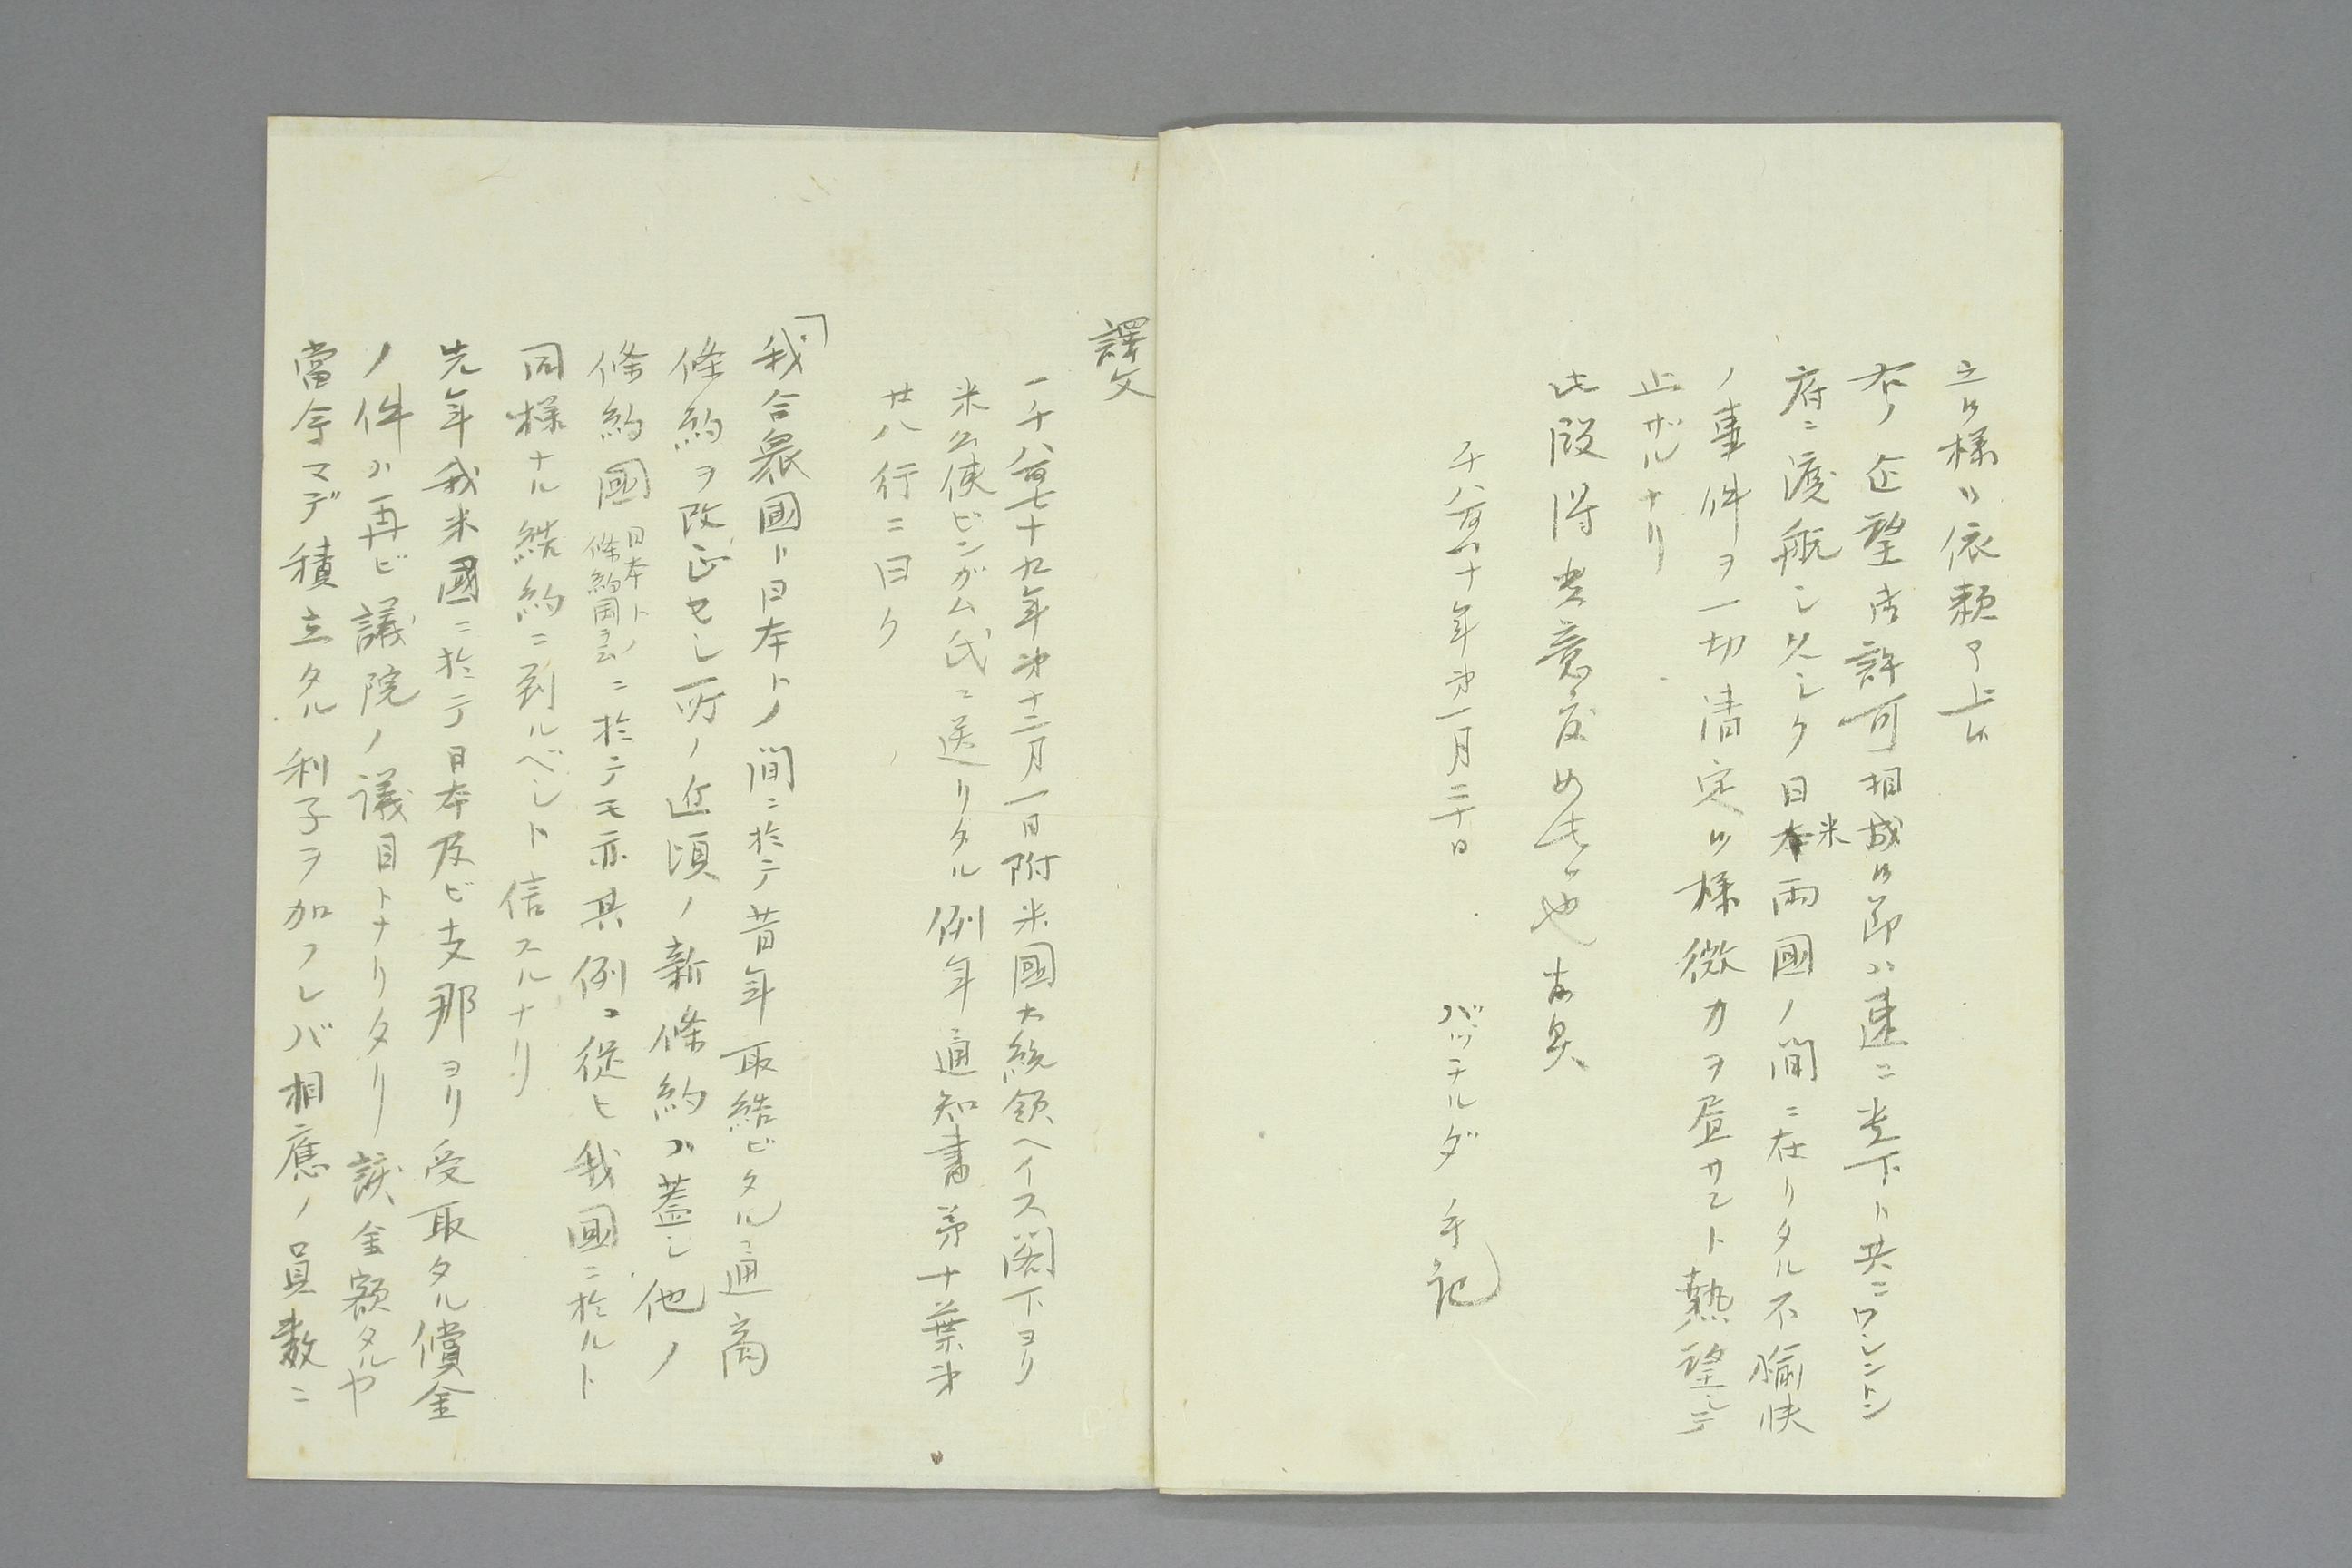 立候様ニ依頼申上候
右ノ企望御許可相成候節ハ速ニ貴下ト共ニワシントン
府ニ渡航シ久シク日米両國ノ間ニ在リタル不愉快
ノ事件ヲ一切清定候様微力ヲ尽サント熱望シテ
止ザルナリ
此段得貴意度如此候也 敬具
千八百八十年第一月二十日
バッチルダ 手記
譯文
一千八百七十九年第十二月一日附米國大統領ヘイス閣下ヨリ
米公使ビンガム氏ニ送リタル例年通知書第十葉第
廿八行ニ曰ク
「我合衆國ト日本トノ間ニ於テ昔年取結ビタル通商
條約ヲ改正セシ所ノ近頃ノ新條約ハ蓋シ他ノ
條約國 日本トノ條約国ヲ云 ニ於テモ亦其例ニ從ヒ我國ニ於ルト
同様ナル結約ニ到ルベシト信スルナリ
先年我米國ニ於テ日本及ビ支那ヨリ受取タル償金
ノ件ハ再ビ議院ノ議目トナリタリ該金額タルヤ
當今マデ積立タル利子ヲ加フレバ相應ノ員数ニ